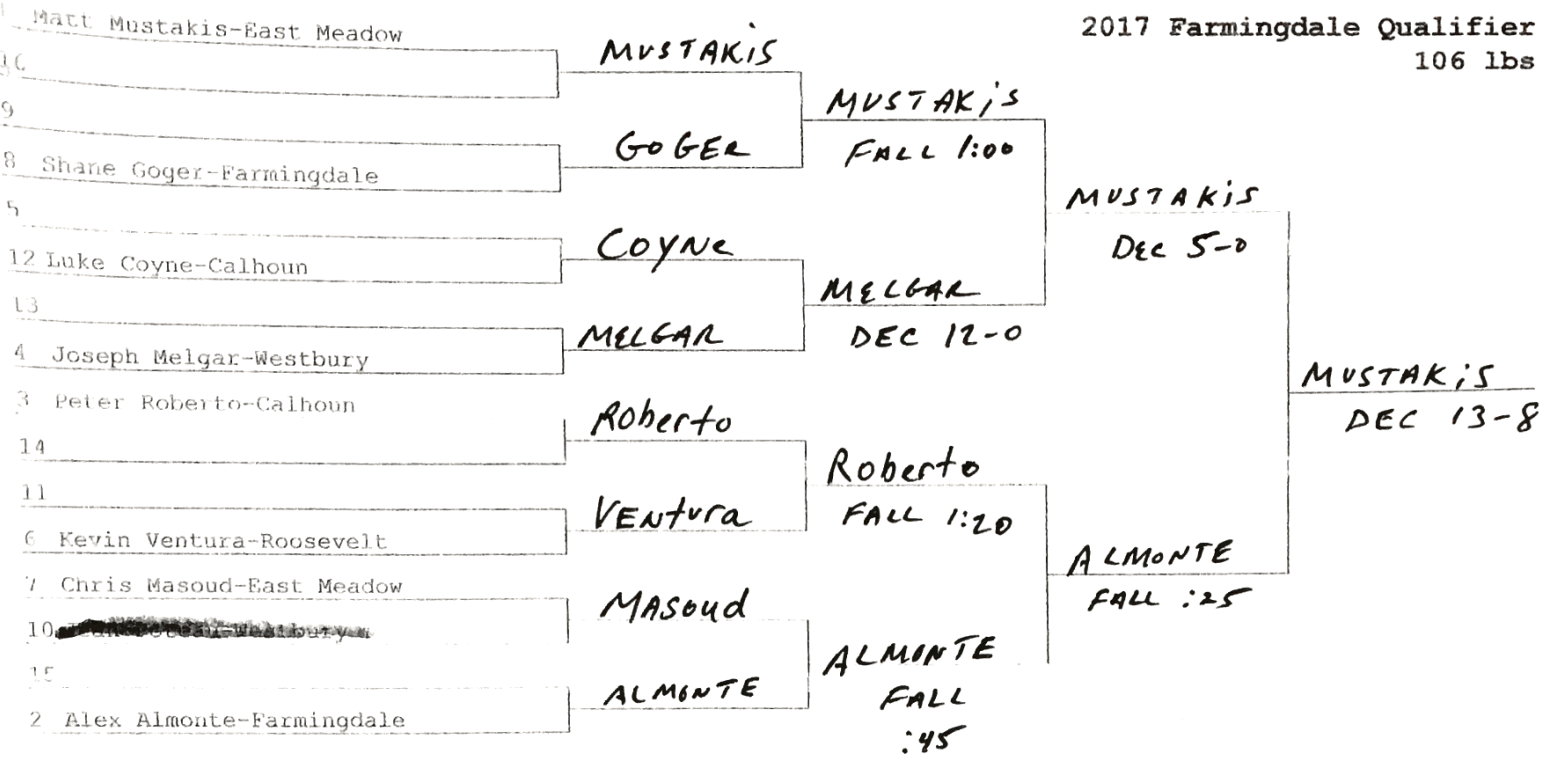 2017 Farmingdale Qualifier
106 lbs
1 Matt Mustakis-East Meadow
16
9
8 Shane Goger-Farmingdale
5
12 Luke Coyne-Calhoun
13
4 Joseph Melgar-Westbury
3 Peter Roberto-Calhoun
14
11
6 Kevin Ventura-Roosevelt
7 Chris Masoud-East Meadow
10 Westbury
15
2 Alex Almonte-Farmingdale
MUSTAKiS
GOGER
COYNe
MELGAR
Roberto
VENtura
MASoud
ALMONTE
MUSTAKiS
FALL 1:00
MELGAR
DEC 12-0
Roberto
FALL 1:20
ALMONTE
FALL
:45
MUSTAKiS
DEC 5-0
ALMONTE
FALL :25
MUSTAKiS
DEC 13-8